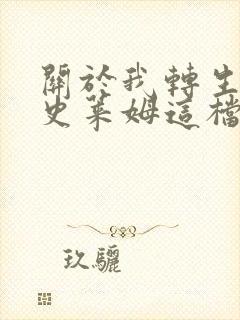 關於我轉生
史萊姆這檔
玖驪